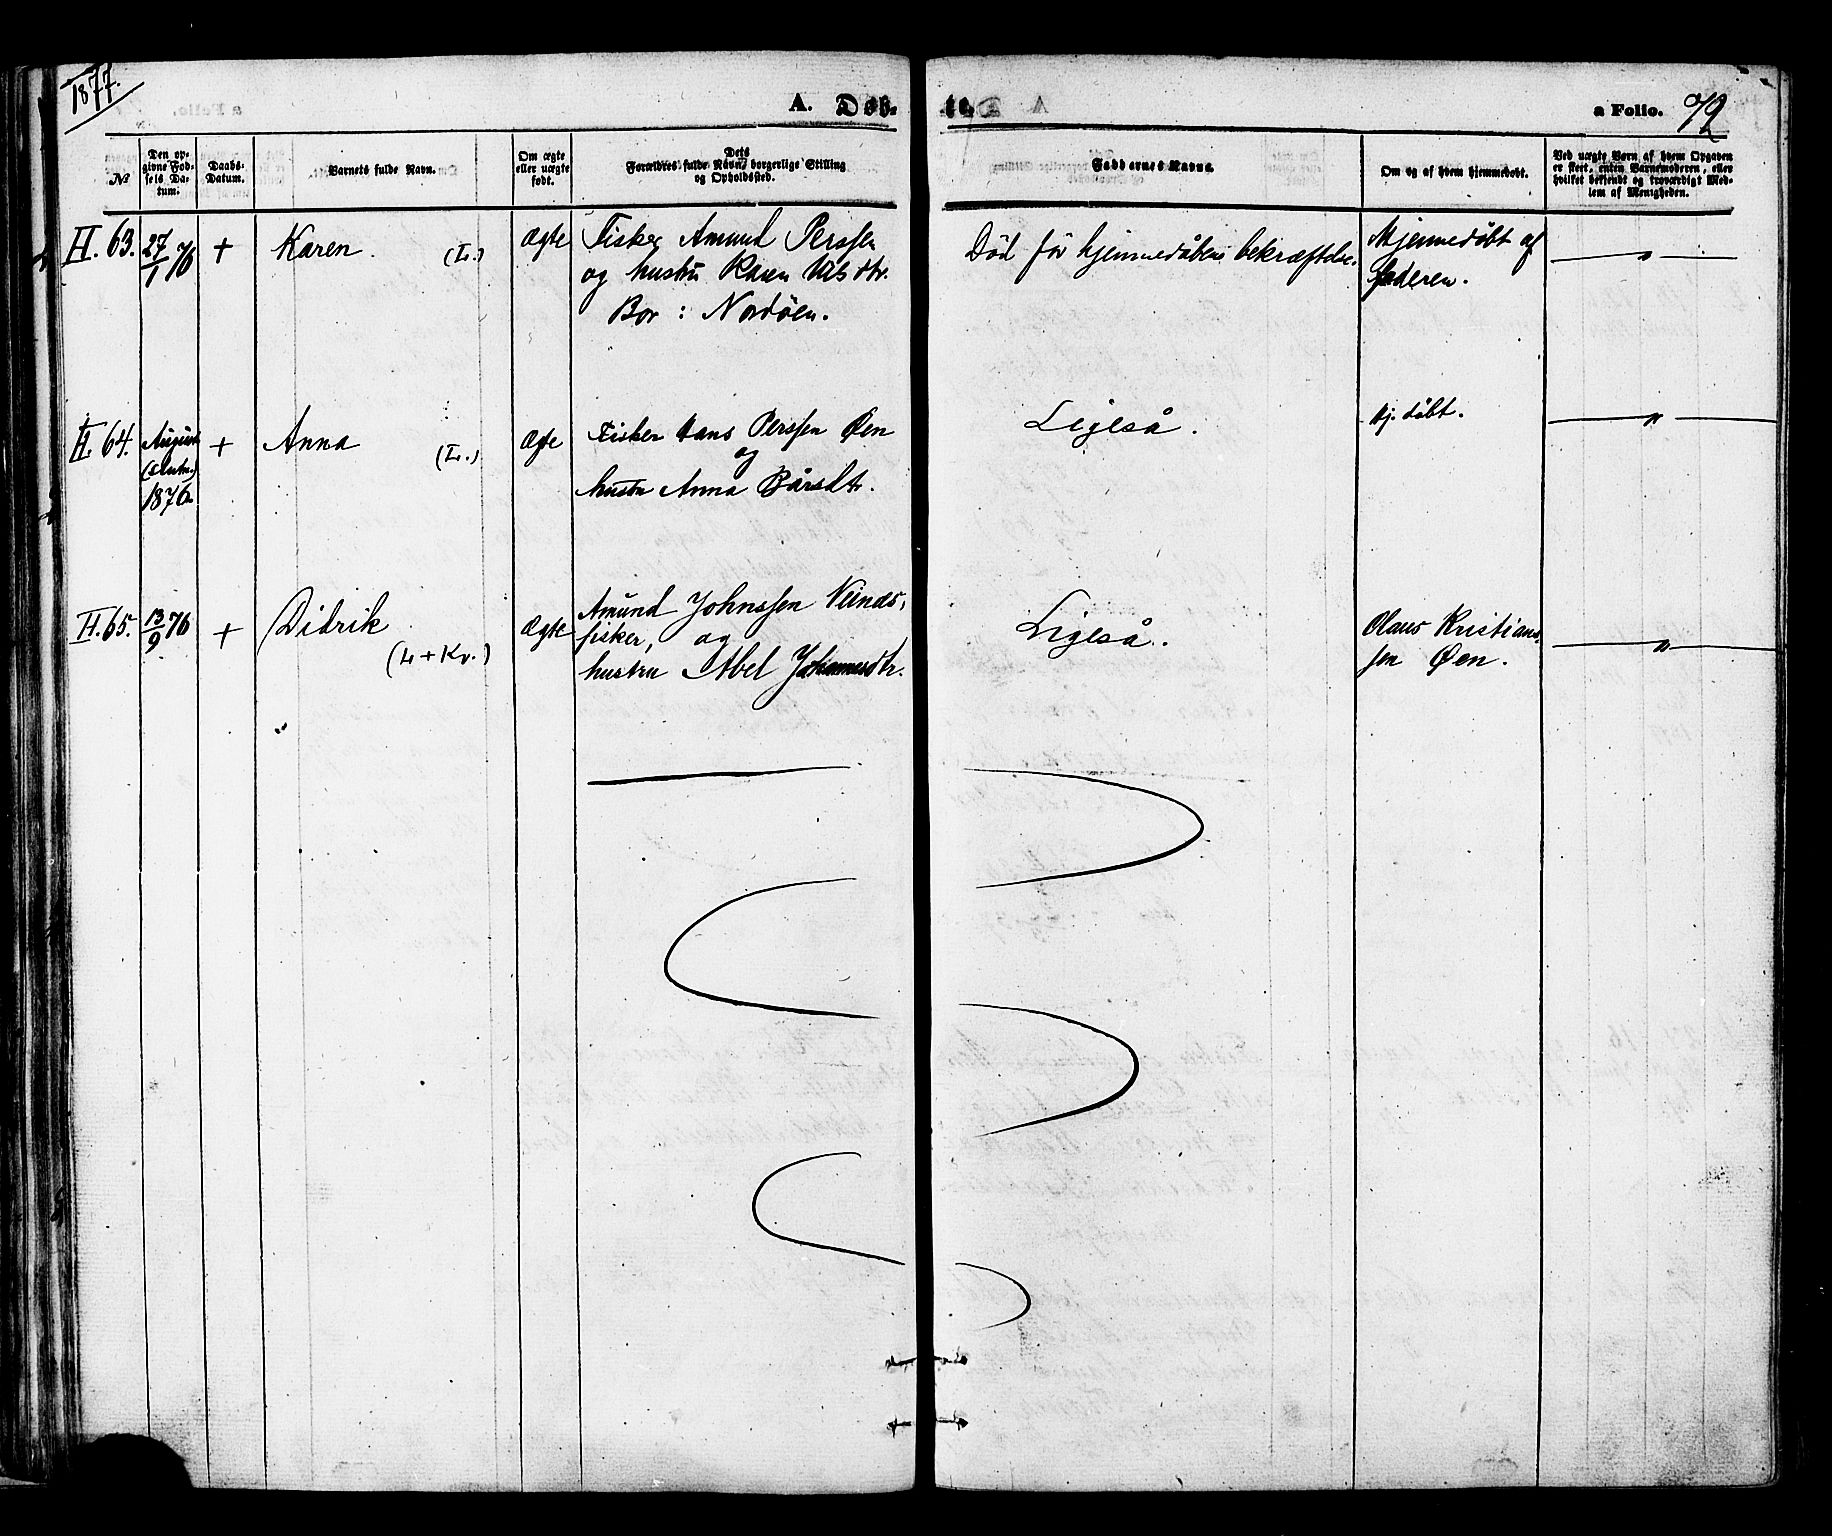 1877.
A. Døb-
te.
a Folio. 72
№
Den op-
givne Fød-
sels Da-
tum.
Daabs-
Datum.
Barnets fulde Navn.
Om ægte
eller uægte
født.
Dets
Forældres fulde Navn, borgerlige Stilling
og Opholdssted.
Faddernes Navne.
Om og af hvem hjemmedøbt.
Ved uægte Børn af hvem Opgaven
er skeet, enten Barnemoderen, eller
hvilket bekjendt og troværdigt Med-
lem af Menigheden.
H. 63. 27/1 76 + Karen. (L.) Ægte
Fisker Amund Perssen
og hustru Karen Nilsdtr.
Bor : Nordøen.
Död för hjemmedåbens bekræftelse.
Hjemmedöbt af
faderen.
"
H. 64. August
1876. + Anna (L.) Ægte
Fisker Hans Perssen Øen
og
hustru Anna Bårsdtr.
Ligeså.
Hj. döbt.
"
H. 65. 13/9 76 + Didrik
(L + Kv.) Ægte
Amund Johnssen
fisker, og
hustru Abel Johannesdtr.
Ligeså.
Olaus Kristians-
sen Øen.
"